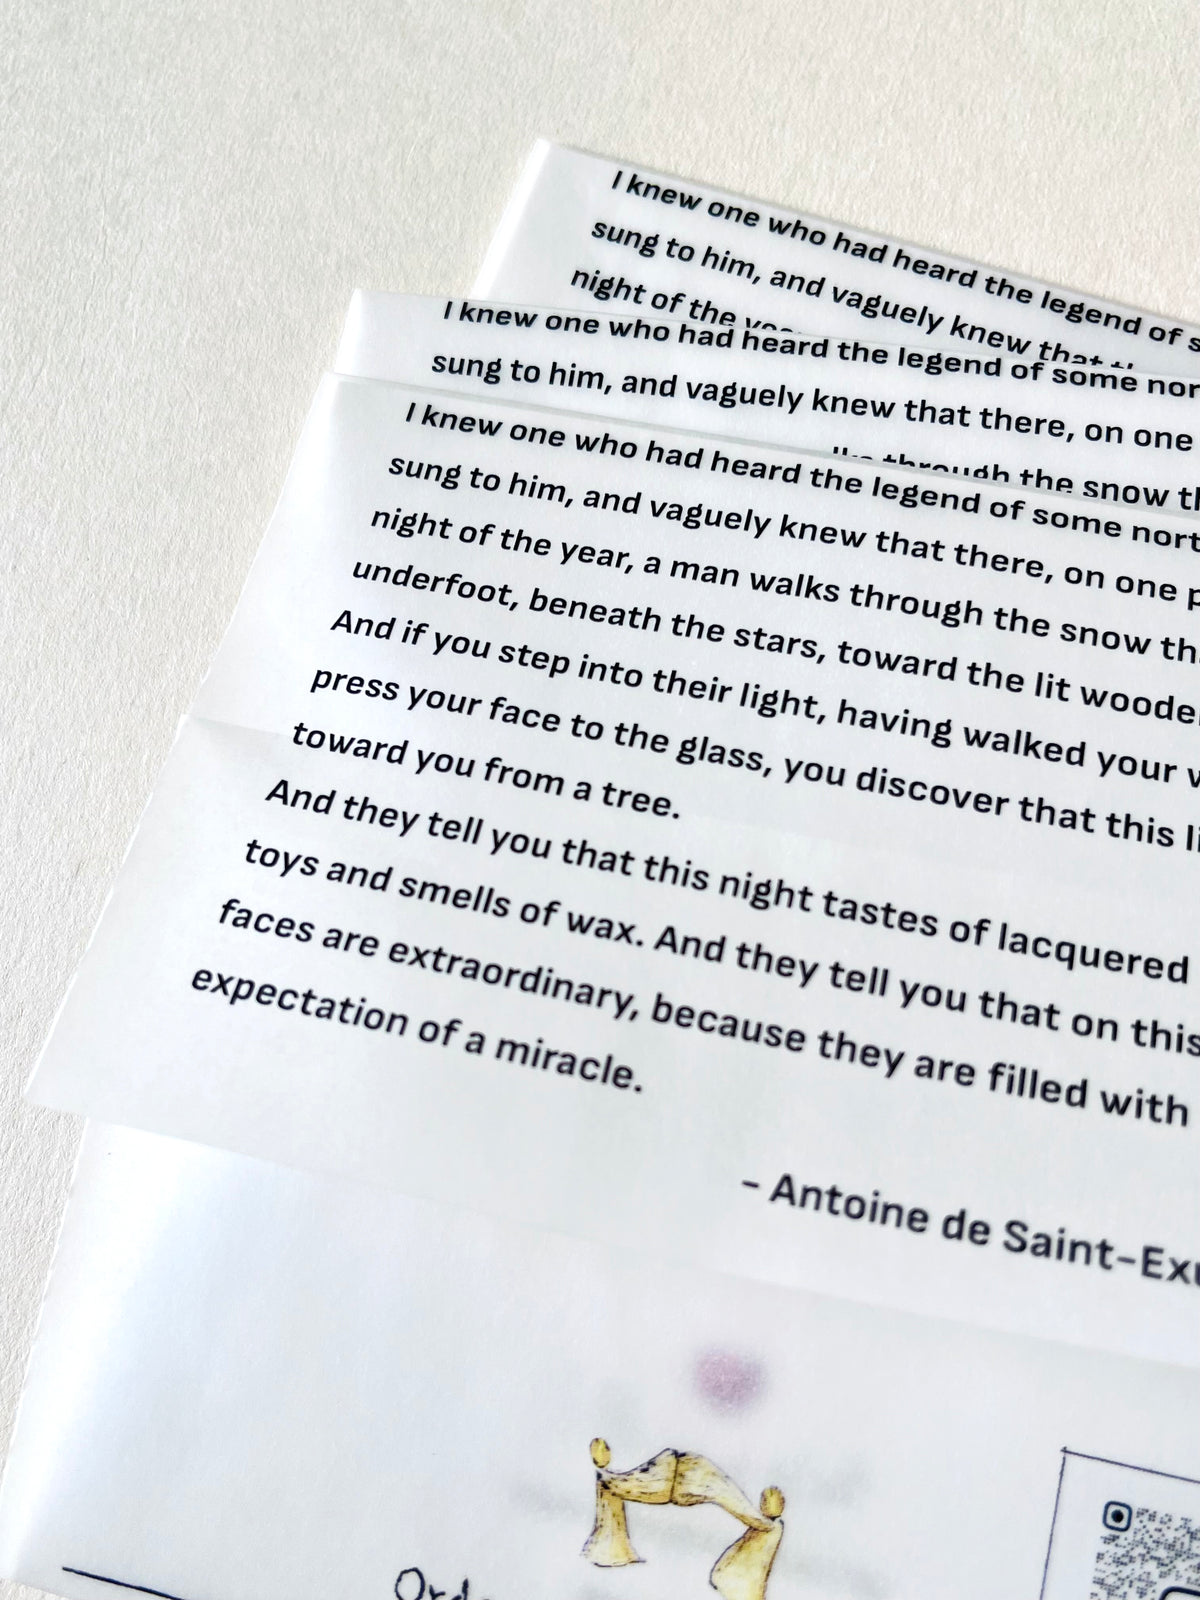 I knew one who had heard the legend of
sung to him, and vaguely knew that
night of the
I knew one who had heard the legend of some
sung to him, and vaguely knew that there, on one
through the snow
I knew one who had heard the legend of some
sung to him, and vaguely knew that there, on one
night of the year, a man walks through the snow
underfoot, beneath the stars, toward the lit
And if you step into their light, having walked your
press your face to the glass, you discover that this
toward you from a tree.
And they tell you that this night tastes of lacquered
toys and smells of wax. And they tell you that on this
faces are extraordinary, because they are filled with
expectation of a miracle.
- Antoine de